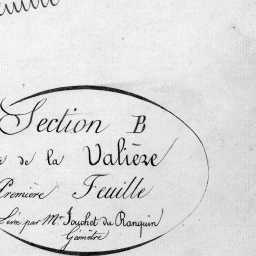 Section B
de la Valièze
Première Feuille
Levée par Mr. Souchot du Ranquin
Géomètre